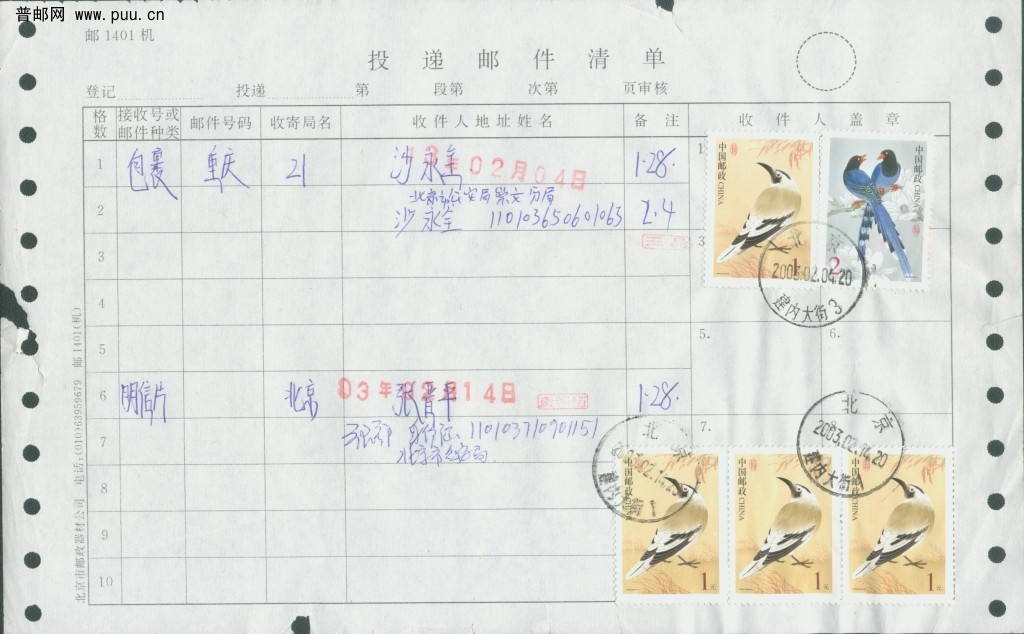 普邮网 www.puu.cn
邮1401机
投递邮件清单
登记 投递 第 段第 次第 页审核
格数 接收号或邮件种类 邮件号码 收寄局名 收件人地址姓名 备注 收件人盖章
1 包裹 重庆 21 沙永全 1.28. 1.
02月04日
北京市公安局崇文分局
2 沙永全 110103650601063 2.4
3 3.
中国邮政 CHINA 1
中国邮政 CHINA 2
北京
2003.02.04.20
建内大街3
4
5 5. 6.
6 明信片 北京 1.28.
03年02月14日
7 110103710901151 7.
北京市公安局
北京
2003.02.14.20
建内大街
北京
2003.02.14.20
建内大街
8
9
10
中国邮政 CHINA 1元
中国邮政 CHINA 1元
中国邮政 CHINA 1元
北京市邮政器材公司 电话:(010)63959679 邮1401(机)